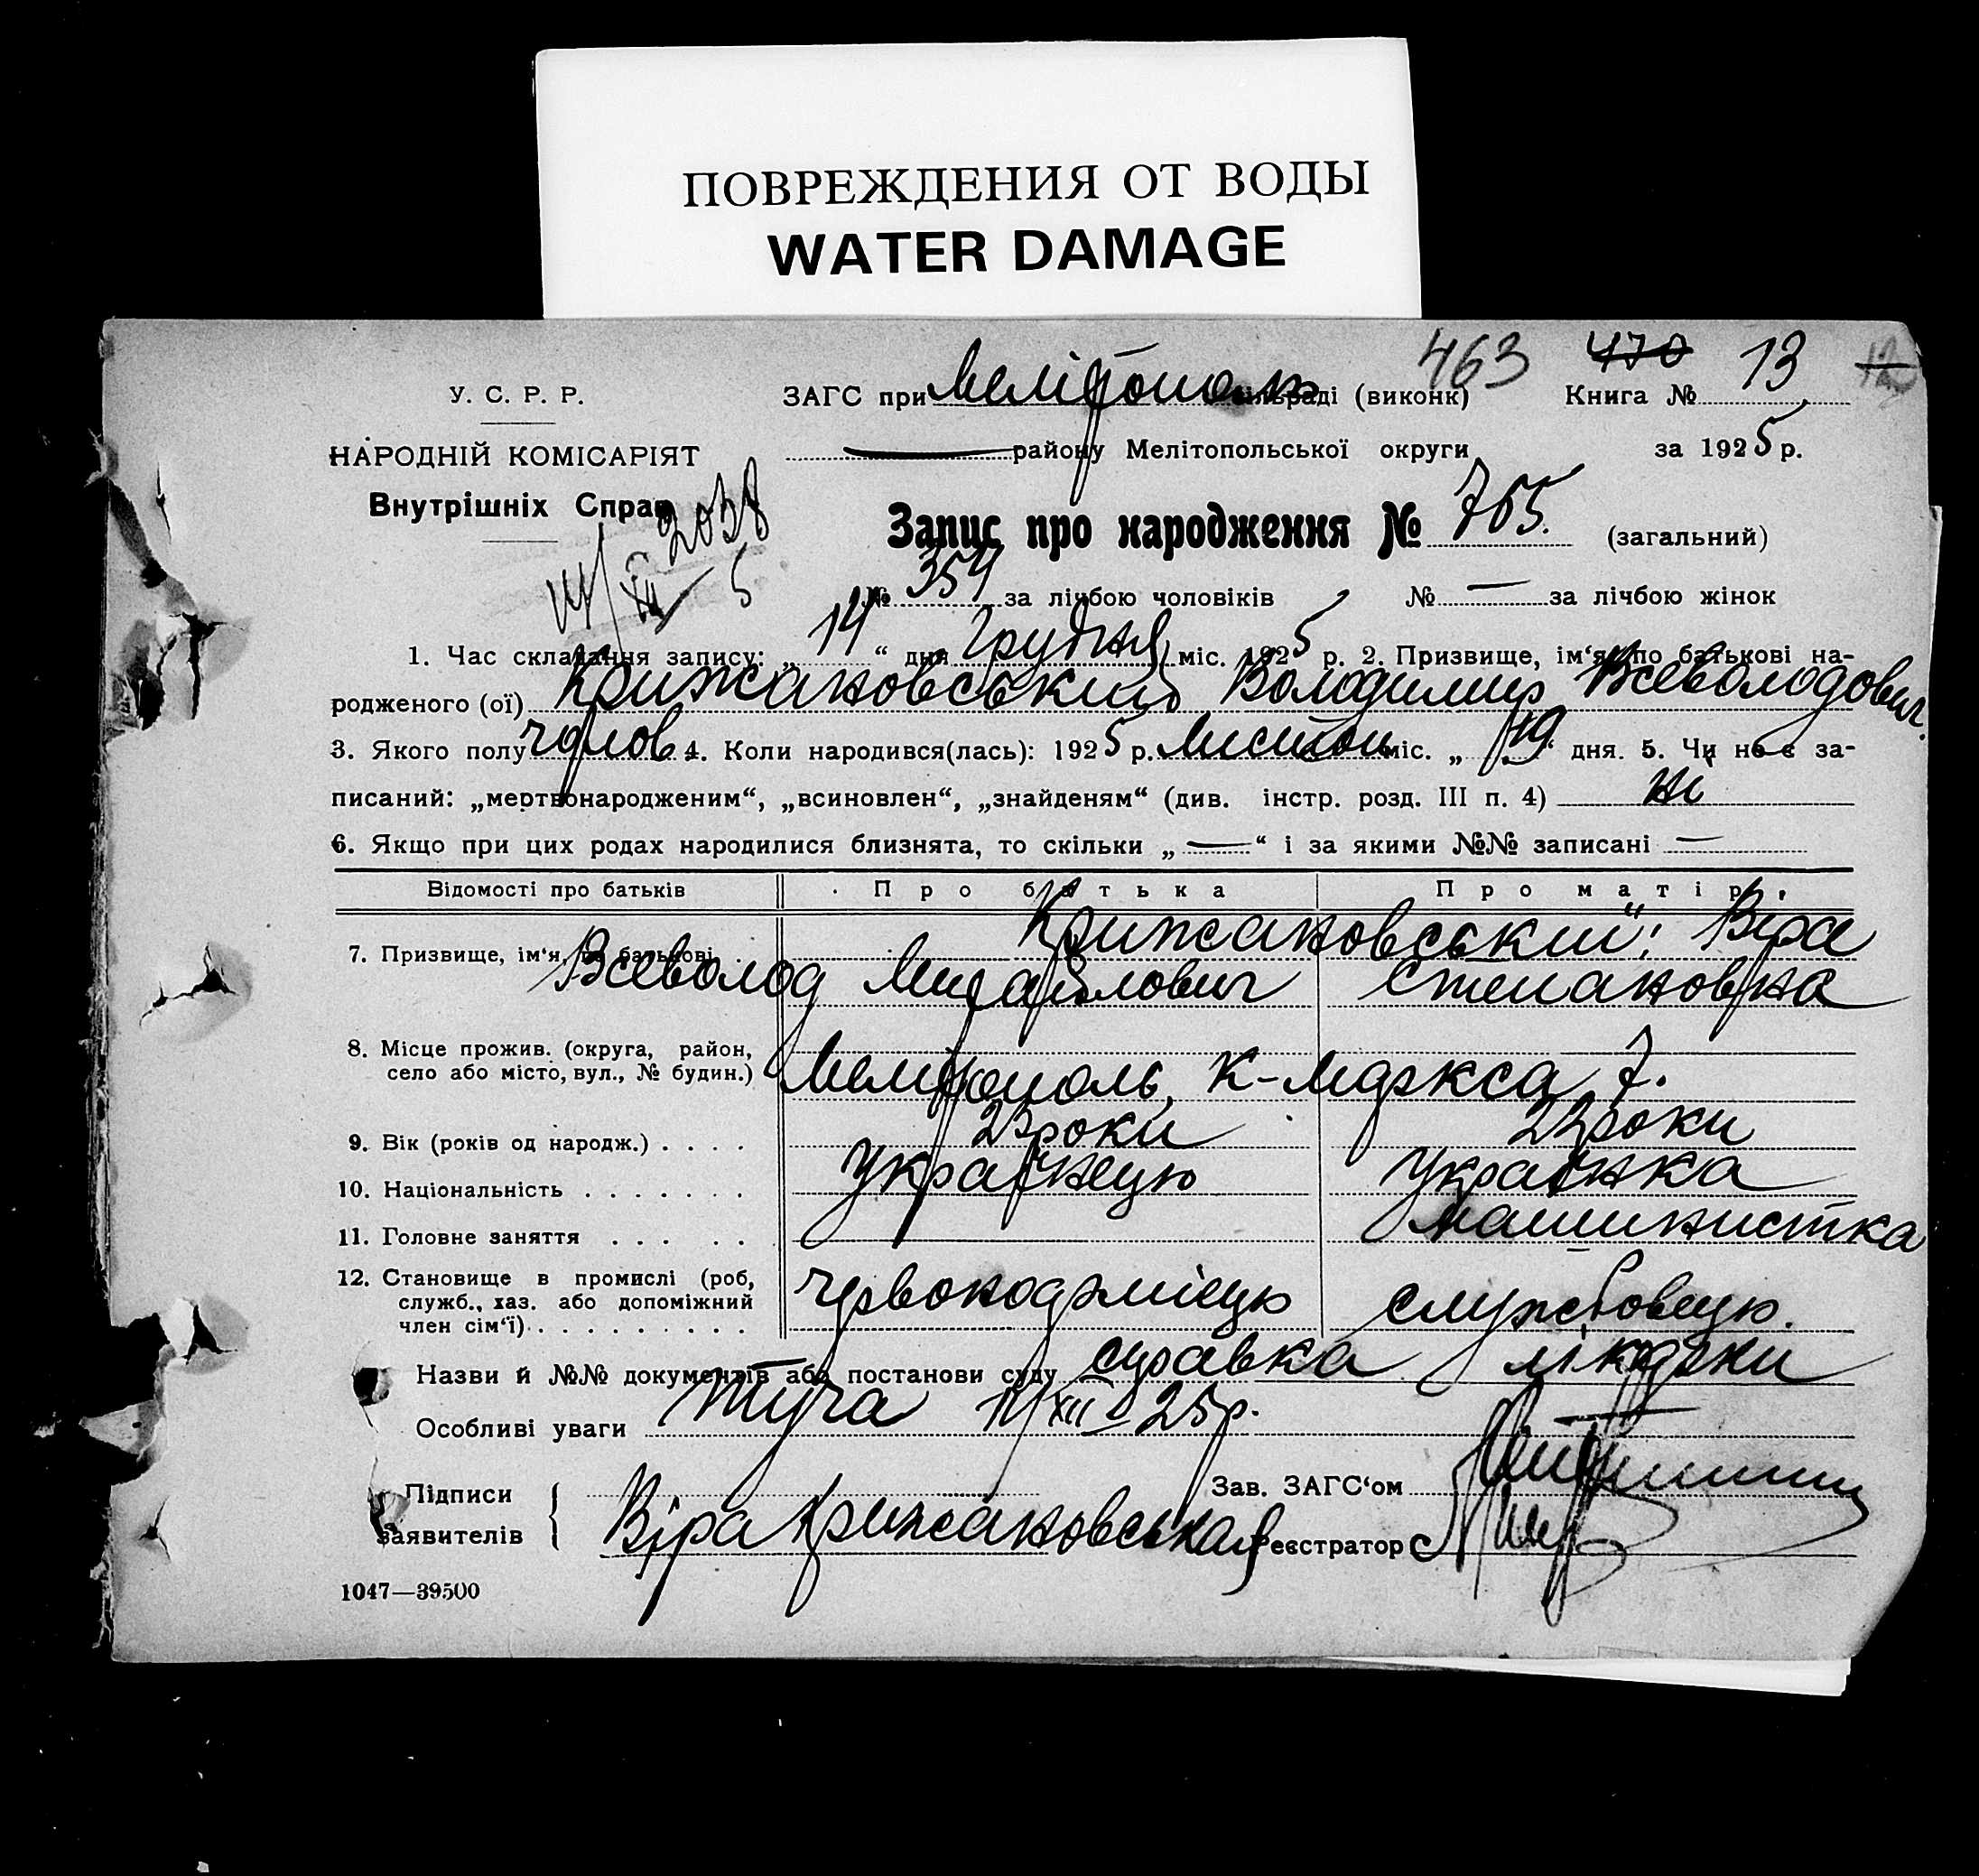 ПОВРЕЖДЕНИЯ ОТ ВОДЫ
WATER DAMAGE
463 470 13 12
У. С. Р. Р.
ЗАГС при Мелітополь сільраді (виконк) Книга №
НАРОДНІЙ КОМІСАРІЯТ
району Мелітопольської округи за 1925 р.
Внутрішніх Справ
2038
14/XII 5
Запис про народження № 705. (загальний)
№ 354 за лічбою чоловіків № — за лічбою жінок
1. Час складання запису: „ 14 “ дня Грудня міс. 1925 р. 2. Призвище, ім‘я, по батькові на-
родженого (ої) Крижановський Володимир Всеволодович.
3. Якого полу чолов 4. Коли народився(лась): 1925 р. Листоп міс. „ 19 “ дня. 5. Чи не є за-
писаний: „мертвонародженим“, „всиновлен“, „знайденям“ (див. інстр. розд. III п. 4) ні
6. Якщо при цих родах народилися близнята, то скільки „ — “ і за якими №№ записані —
Відомості про батьків Про батька Про матір
7. Призвище, ім‘я, по батькові Крижановський: Віра
Всеволод Михайлович Степановна
8. Місце прожив. (округа, район,
село або місто, вул., № будин.) Мелітополь, К-Маркса 7.
9. Вік (років од народж.) . . . . 23 роки 22 роки
10. Національність . . . . . . . Українець Українка
11. Головне заняття . . . . . — машинистка
12. Становище в промислі (роб,
служб., хаз. або допоміжний
член сім‘ї) . . . . . . . . . червоноармієць службовець.
Назви й №№ документів або постанови суду справка лікарки
Особливі уваги 11/XII 25 р.
Підписи
заявителів
Віра Крижановська
Зав. ЗАГС‘ом
Реєстратор
1047—39500